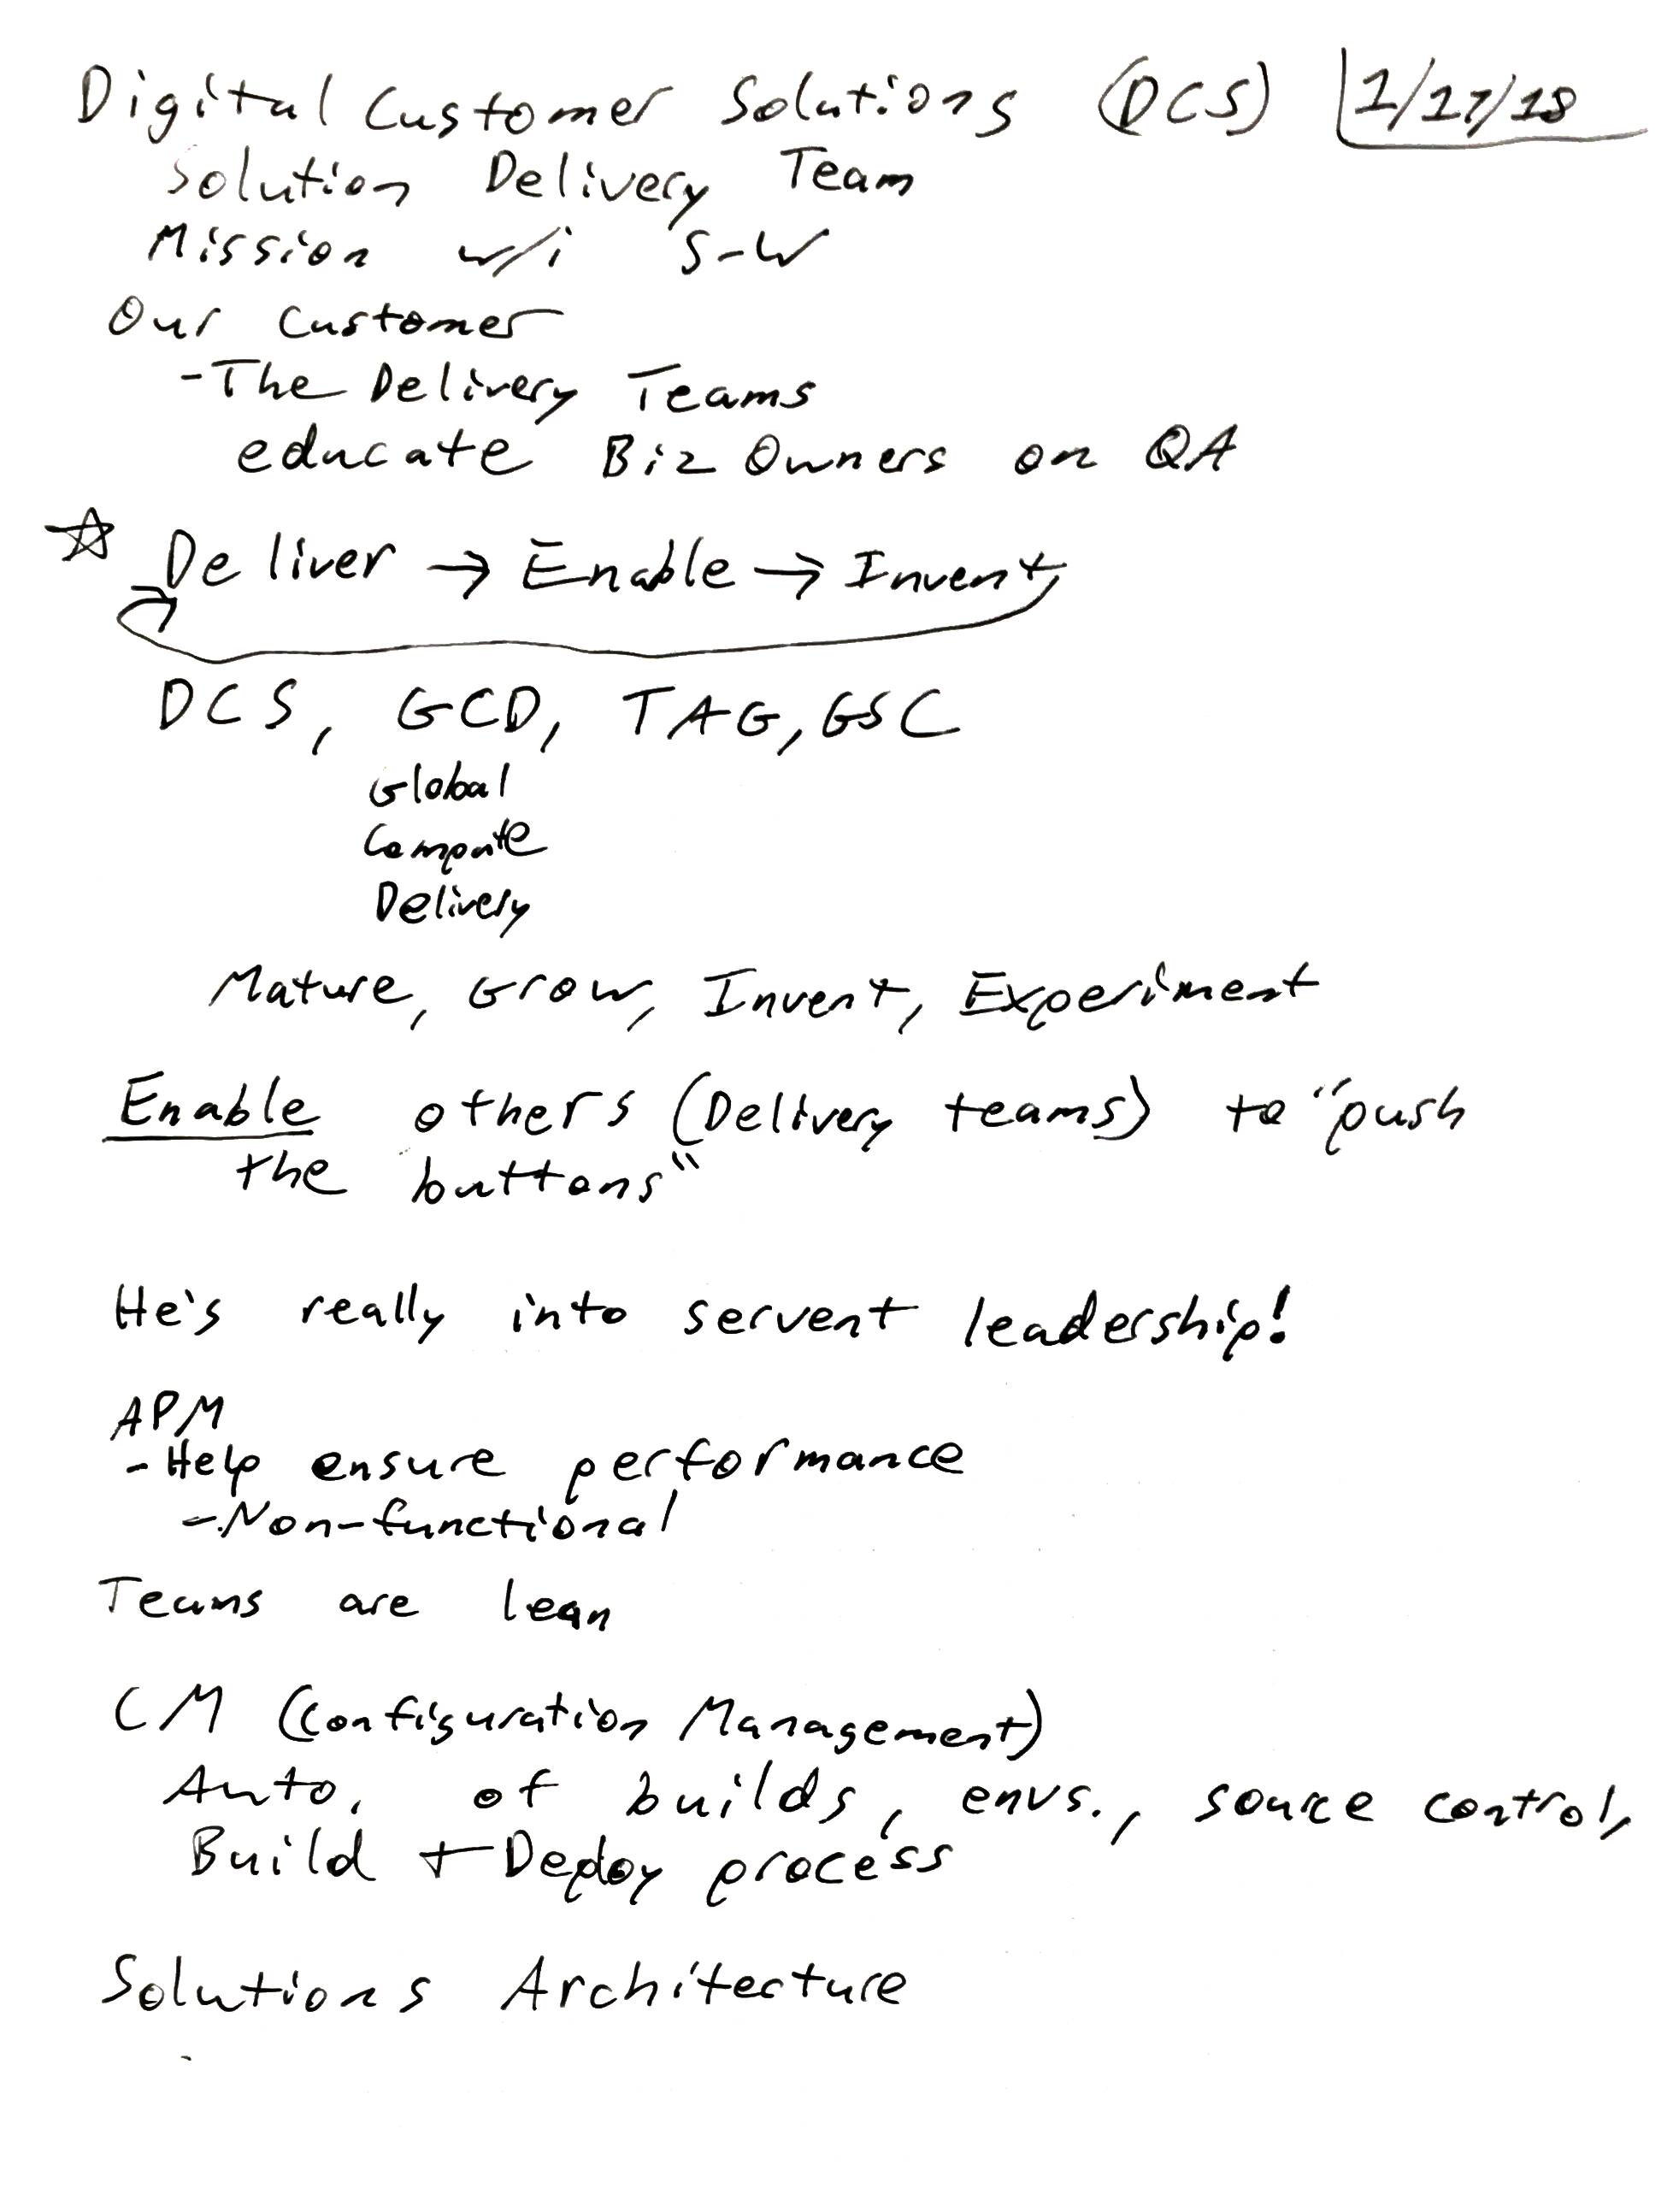 Digital Customer Solutions (DCS) 1/17/18
Solution Delivery Team
Mission w/i S-W
Our Customer
- The Delivery Teams
educate Biz Owners on QA
☆ Deliver → Enable → Invent
DCS, GCD, TAG, GSC
Global
Compute
Delivery
Mature, Grow, Invent, Experiment
Enable others (Delivery teams) to "push
the buttons"
He's really into servent leadership!
APM
- Help ensure performance
- Non-functional
Teams are lean
CM (Configuration Management)
Auto. of builds, envs., source control,
Build + Deploy process
Solutions Architecture
-